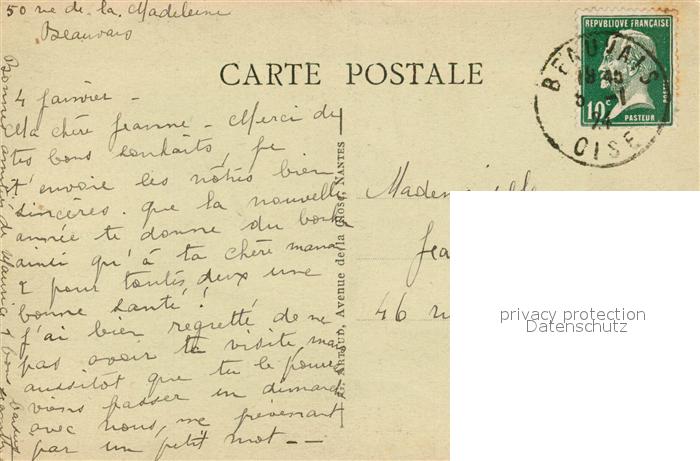 50 rue de la Madeleine
Beauvais
CARTE POSTALE
4 janvier -
Ma chère Jeanne - Merci de
tes bons souhaits, je
t'envoie les nôtres bien
sincères. que la nouvelle
année te donne du bonheur
ainsi qu'à ta chère maman
& pour toutes deux une
bonne santé!
J'ai bien regretté de ne
pas avoir ta visite, mais
aussitôt que tu le pourras
viens passer un dimanche
avec nous, me prévenant
par un petit mot --
Bonnes amitiés de Maman & bons baisers
ARTAUD, Avenue de la Close, NANTES
REPUBLIQUE FRANÇAISE
10c
POSTES
PASTEUR
BEAUVAIS
OISE
Mademoiselle
Jea
46 ru
privacy protection
Datenschutz